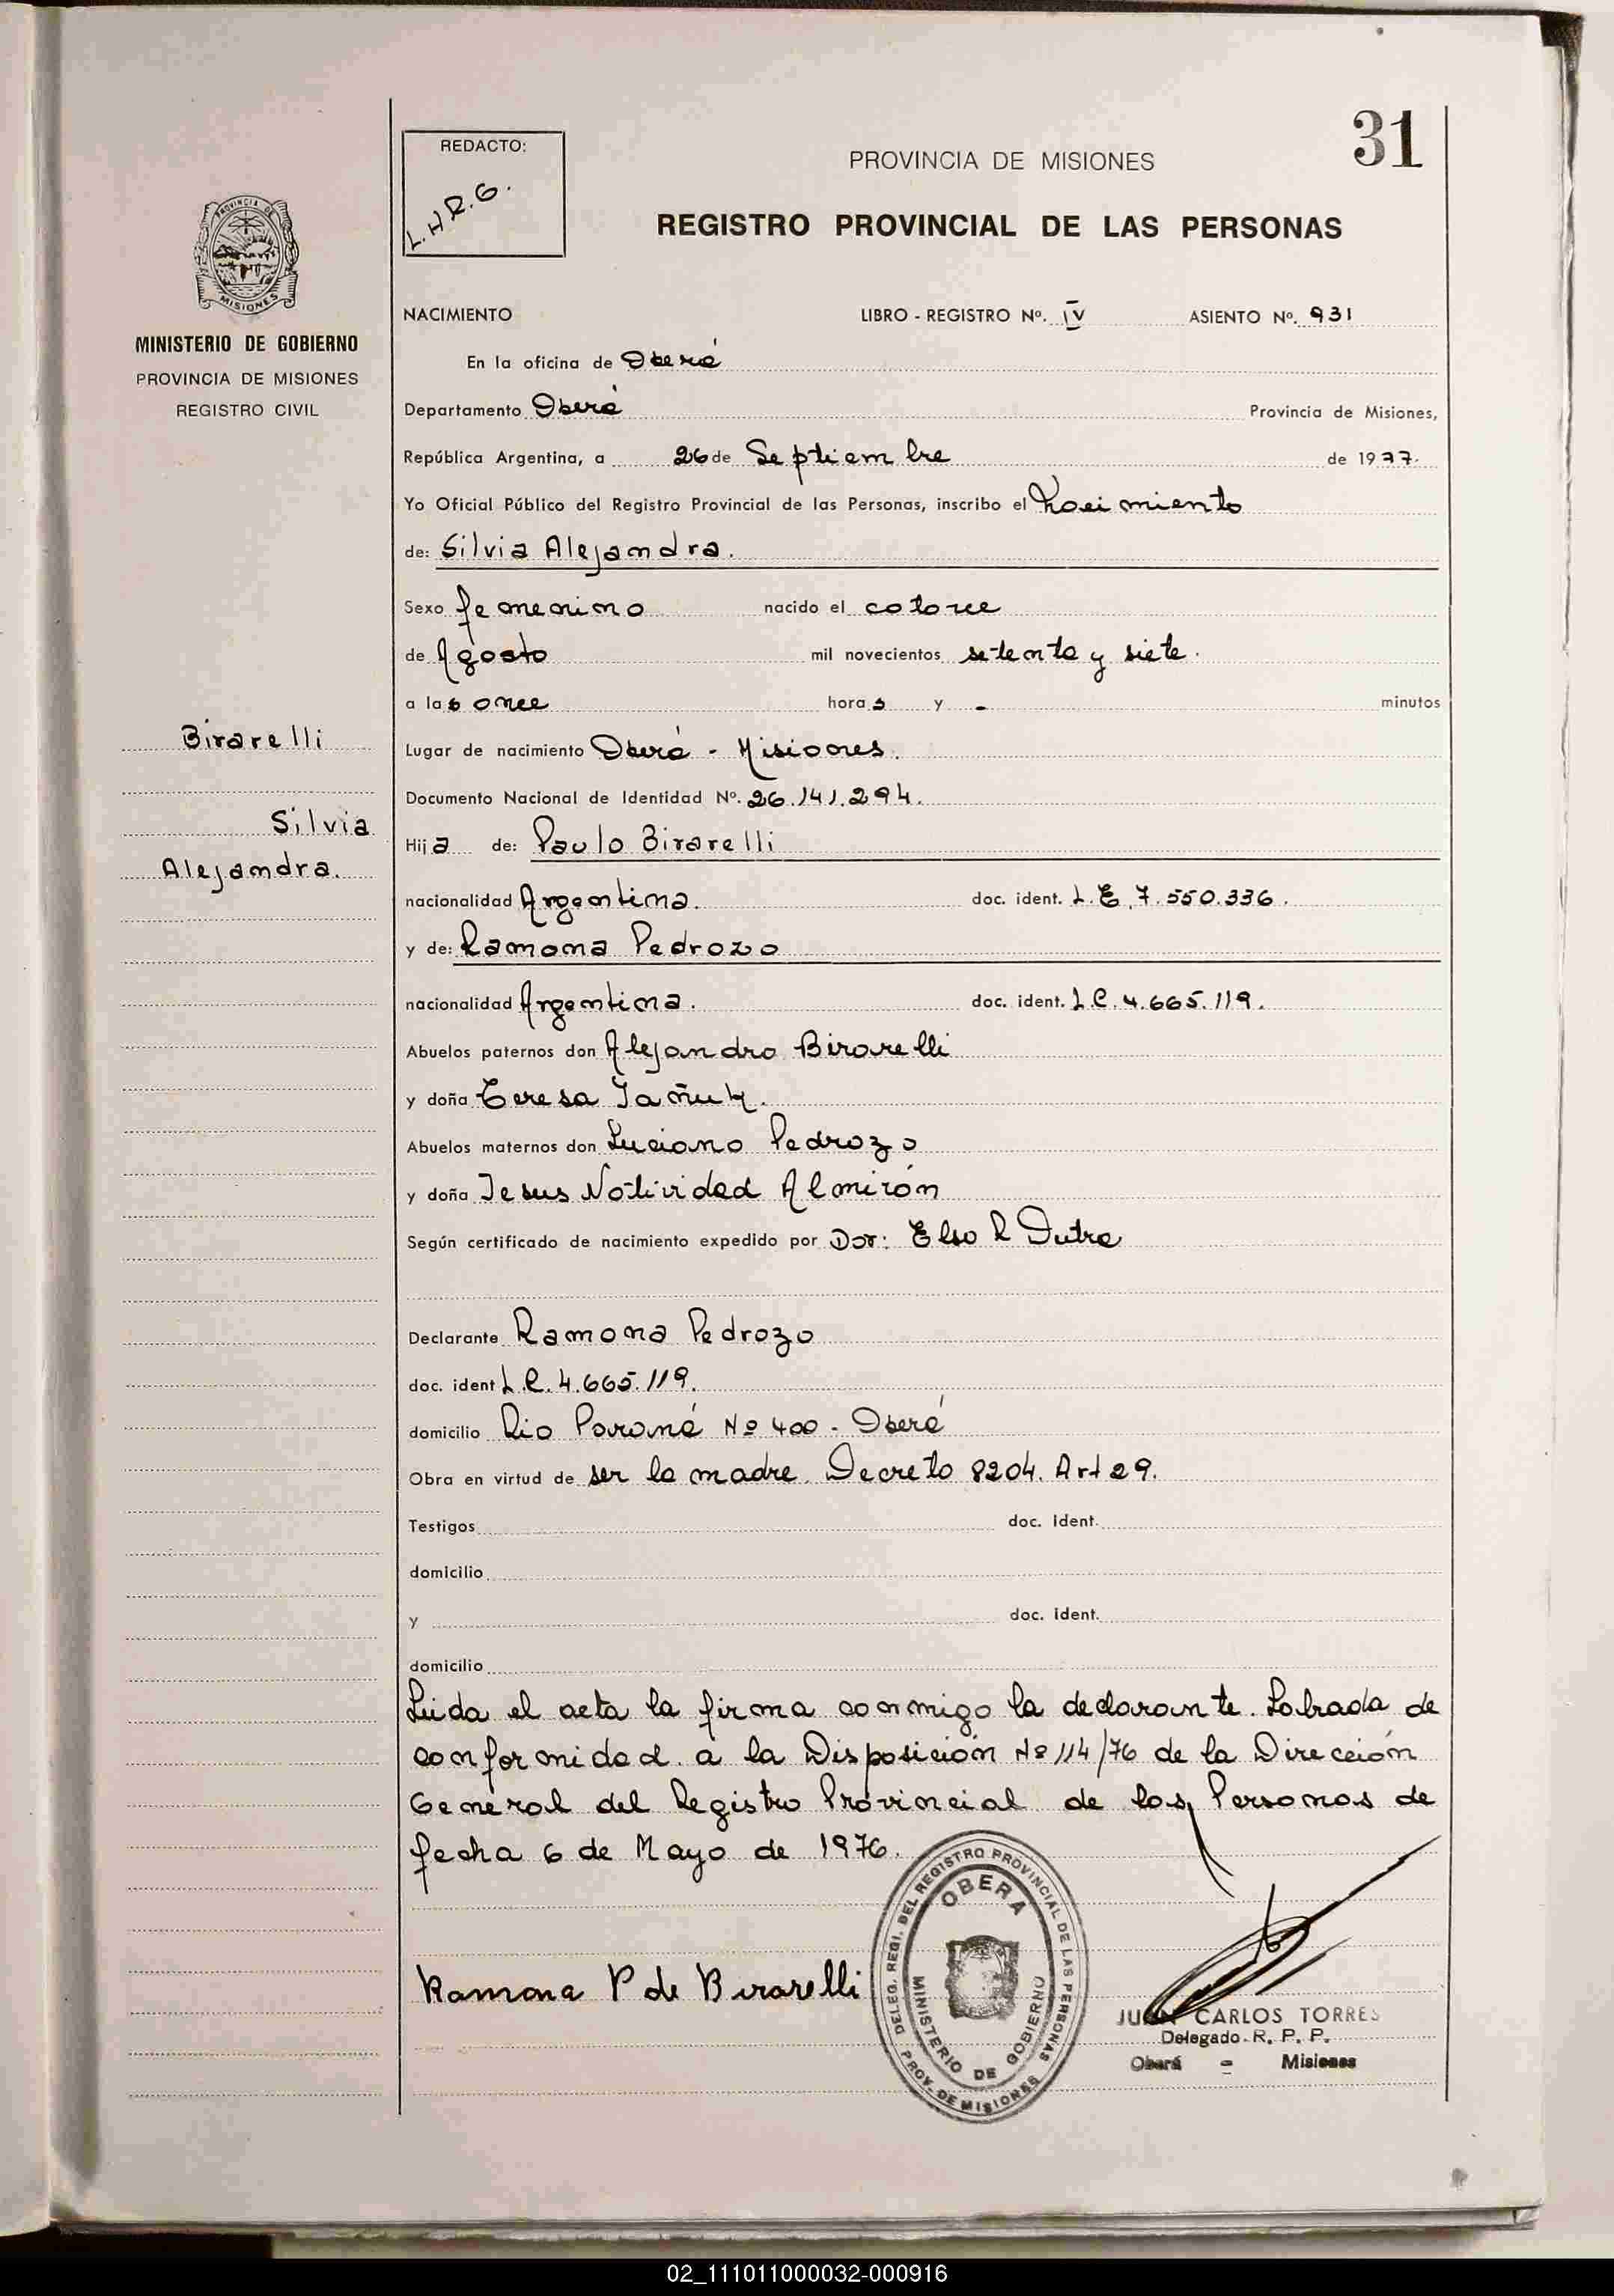 31
REDACTO:
L.H.R.G.
PROVINCIA DE MISIONES
REGISTRO PROVINCIAL DE LAS PERSONAS
PROVINCIA DE
MISIONES
MINISTERIO DE GOBIERNO
PROVINCIA DE MISIONES
REGISTRO CIVIL
NACIMIENTO LIBRO - REGISTRO Nº. IV ASIENTO Nº. 931
En la oficina de Oberá
Departamento Oberá Provincia de Misiones,
República Argentina, a 26 de Septiembre de 1977.
Yo Oficial Público del Registro Provincial de las Personas, inscribo el Nacimiento
de: Silvia Alejandra.
Sexo femenino nacido el catorce
de Agosto mil novecientos setenta y siete.
a las once horas y - minutos
Birarelli
Silvia
Alejandra.
Lugar de nacimiento Oberá - Misiones.
Documento Nacional de Identidad Nº. 26.141.294.
Hija de: Paulo Birarelli
nacionalidad Argentina. doc. ident. L.E. 7.550.336.
y de: Ramona Pedrozo
nacionalidad Argentina. doc. ident. L.C. 4.665.119.
Abuelos paternos don Alejandro Birarelli
y doña Teresa Iañuk.
Abuelos maternos don Luciano Pedrozo
y doña Jesus Natividad Almirón
Según certificado de nacimiento expedido por Dor: Elso R Dutra
Declarante Ramona Pedrozo
doc. ident L.C. 4.665.119.
domicilio Rio Paraná Nº 400 - Oberá
Obra en virtud de ser la madre. Decreto 8204. Art 29.
Testigos doc. ident.
domicilio
y doc. ident.
domicilio
Leida el acta la firma conmigo la declarante. Labrada de
conformidad a la Disposición Nº 114/76 de la Dirección
General del Registro Provincial de las Personas de
fecha 6 de Mayo de 1976.
Ramona P de Birarelli
DELEG. REGI. DEL REGISTRO PROVINCIAL DE LAS PERSONAS
OBERA
MINISTERIO DE GOBIERNO
PROV. DE MISIONES
JUAN CARLOS TORRES
Delegado R. P. P.
Oberá - Misiones
02_111011000032-000916